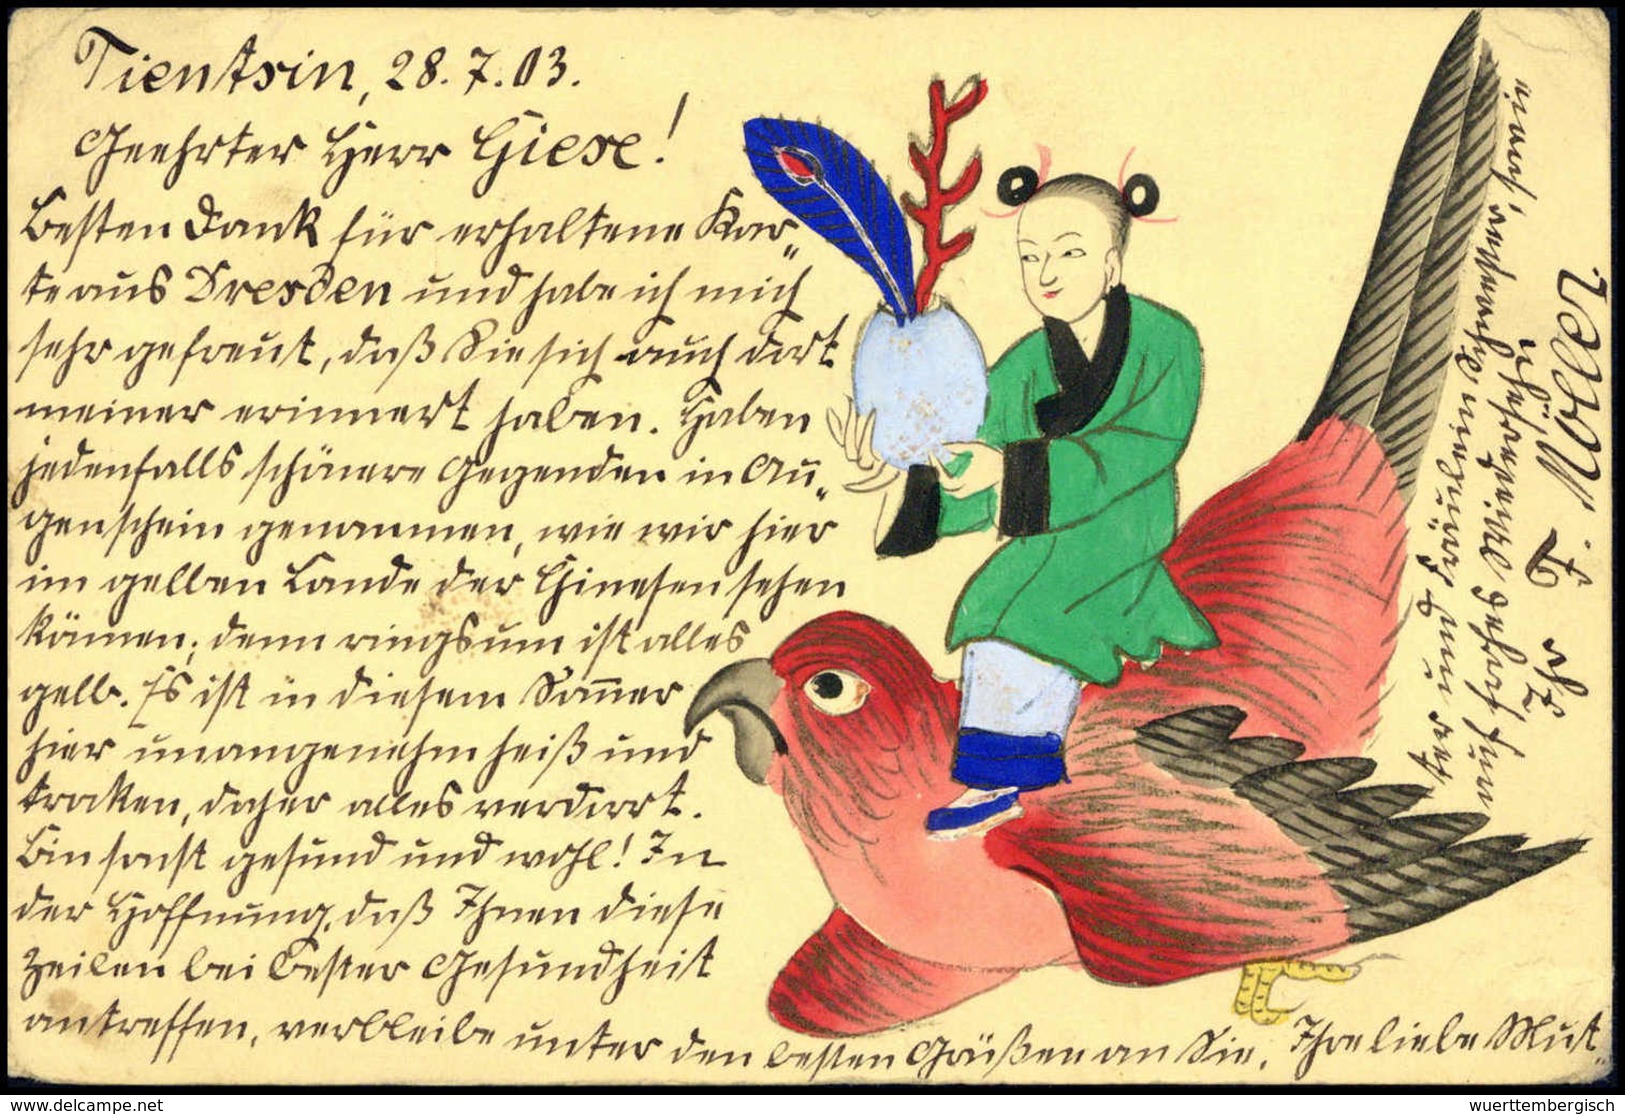 Tientsin, 28.7.03.
Geehrter Herr Giese!
Besten Dank für erhaltene Kar-
te aus Dresden und habe ich mich
sehr gefreut, daß Sie sich auch dort
meiner erinnert haben. Haben
jedenfalls schönere Gegenden in Au-
genschein genommen, wie wir hier
im gelben Lande der Chinesen sehen
können; denn ringsum ist alles
gelb. Es ist in diesem Sommer
hier unangenehm heiß und
trocken, daher alles verdorrt.
Bin sonst gesund und wohl! In
der Hoffnung, daß Ihnen diese
Zeilen bei bester Gesundheit
antreffen, verbleibe unter den besten Grüßen an Sie, Ihre liebe Mut-
ter und Fräulein Schwester,
Ihr
wuerttembergisch
© www.delcampe.net